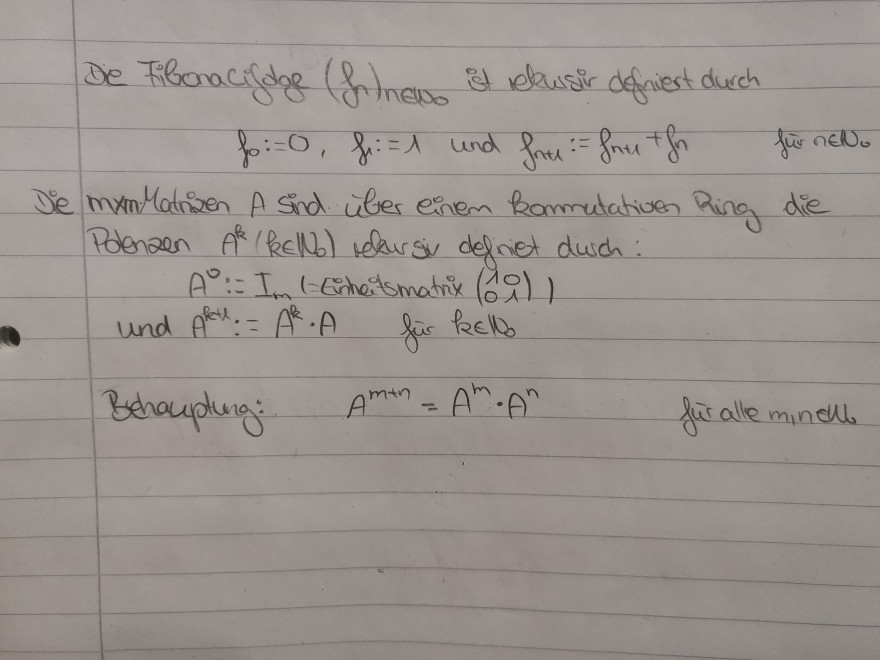 Die Fibonacifolge (fn)n∈ℕ₀ ist rekursiv definiert durch
f₀:=0, f₁:=1 und fn+1:=fn+1+fn für n∈ℕ₀
Die mxm Matrizen A sind über einem kommutativen Ring die
Potenzen Aᵏ (k∈ℕ₀) rekursiv definiet durch:
A⁰:=Iₘ (=Einheitsmatrix (1 0 0 1))
und Aᵏ⁺¹:= Aᵏ·A für k∈ℕ₀
Behauptung: Aᵐ⁺ⁿ = Aᵐ·Aⁿ für alle m,n∈ℕ₀